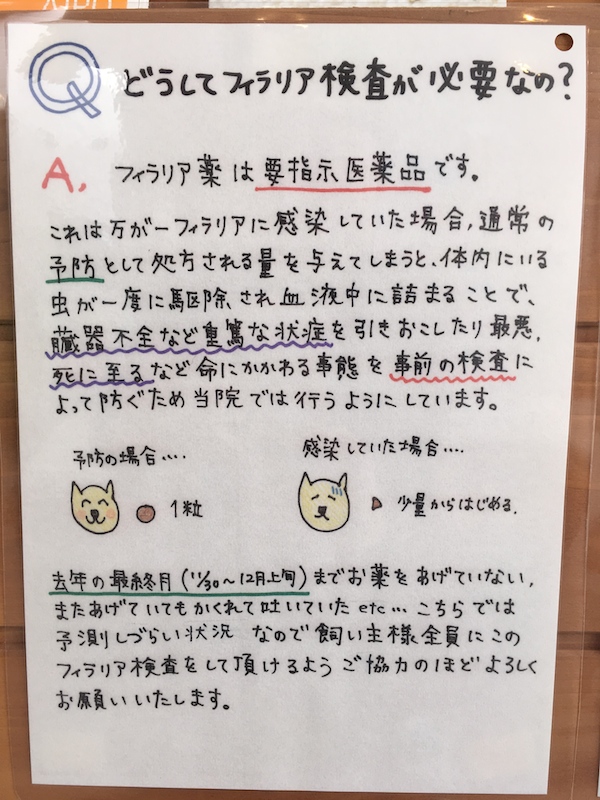 Q どうしてフィラリア検査が必要なの?
A, フィラリア薬は要指示医薬品です。
これは万が一フィラリアに感染していた場合,通常の
予防として処方される量を与えてしまうと、体内にいる
虫が一度に駆除され血液中に詰まることで、
臓器不全など重篤な状症を引きおこしたり最悪,
死に至るなど命にかかわる事態を事前の検査に
よって防ぐため当院では行うようにしています。
予防の場合‥‥
感染していた場合‥‥
1粒
少量からはじめる.
去年の最終月(11/30~12月上旬)までお薬をあげていない,
またあげていてもかくれて吐いていたetc… こちらでは
予測しづらい状況 なので飼い主様全員にこの
フィラリア検査をして頂けるようご協力のほどよろしく
お願いいたします。